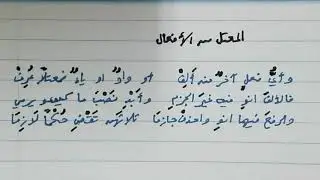 المعتل من الأفعال
وأيُّ فعلٍ آخرٌ منه ألِفْ أو واوٌ او ياءٌ فمعتلًا عُرِفْ
فالألفَ انوِ فيه غيرَ الجزمِ وأبدِ نصْبَ ما كيدعو يرمي
والرفعَ فيهما انوِ واحذف جازما ثلاثهن تقضِ حُكْمًا لازما